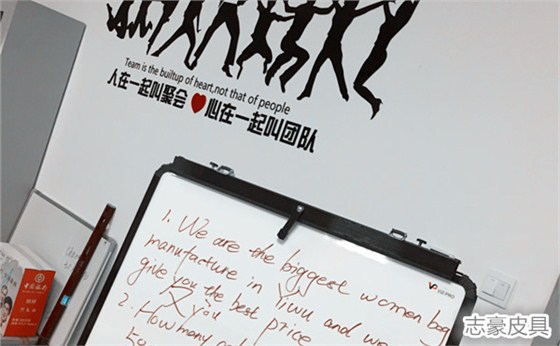 Team is the builtup of heart,not that of people
人在一起叫聚会❤心在一起叫团队
1. We are the biggest women bag
manufacture in Yiwu and we
give you the best price
you
2. How many
志豪皮具